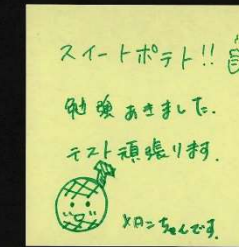 スイートポテト!!
勉強あきました.
テスト頑張ります.
メロンちゃんです.